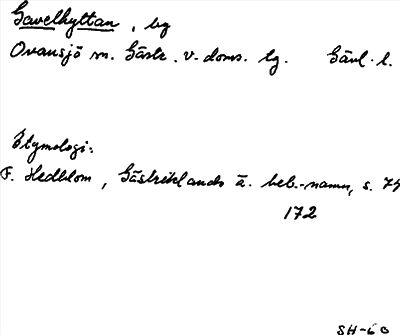 Gavelhyttan, bg
Ovansjö sn. Gästr. v. doms. lg. Gävl. l.
Etymologi:
F. Hedblom, Gästriklands ä. beb.-namn, s. 74
172
SH-60